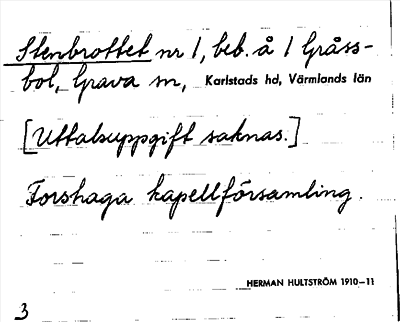 Stenbrottet nr 1, beb. å 1 Gråss-
bol, Grava sn, Karlstads hd, Värmlands län
[Uttalsuppgift saknas.]
Forshaga kapellförsamling.
HERMAN HULTSTRÖM 1910-11
3